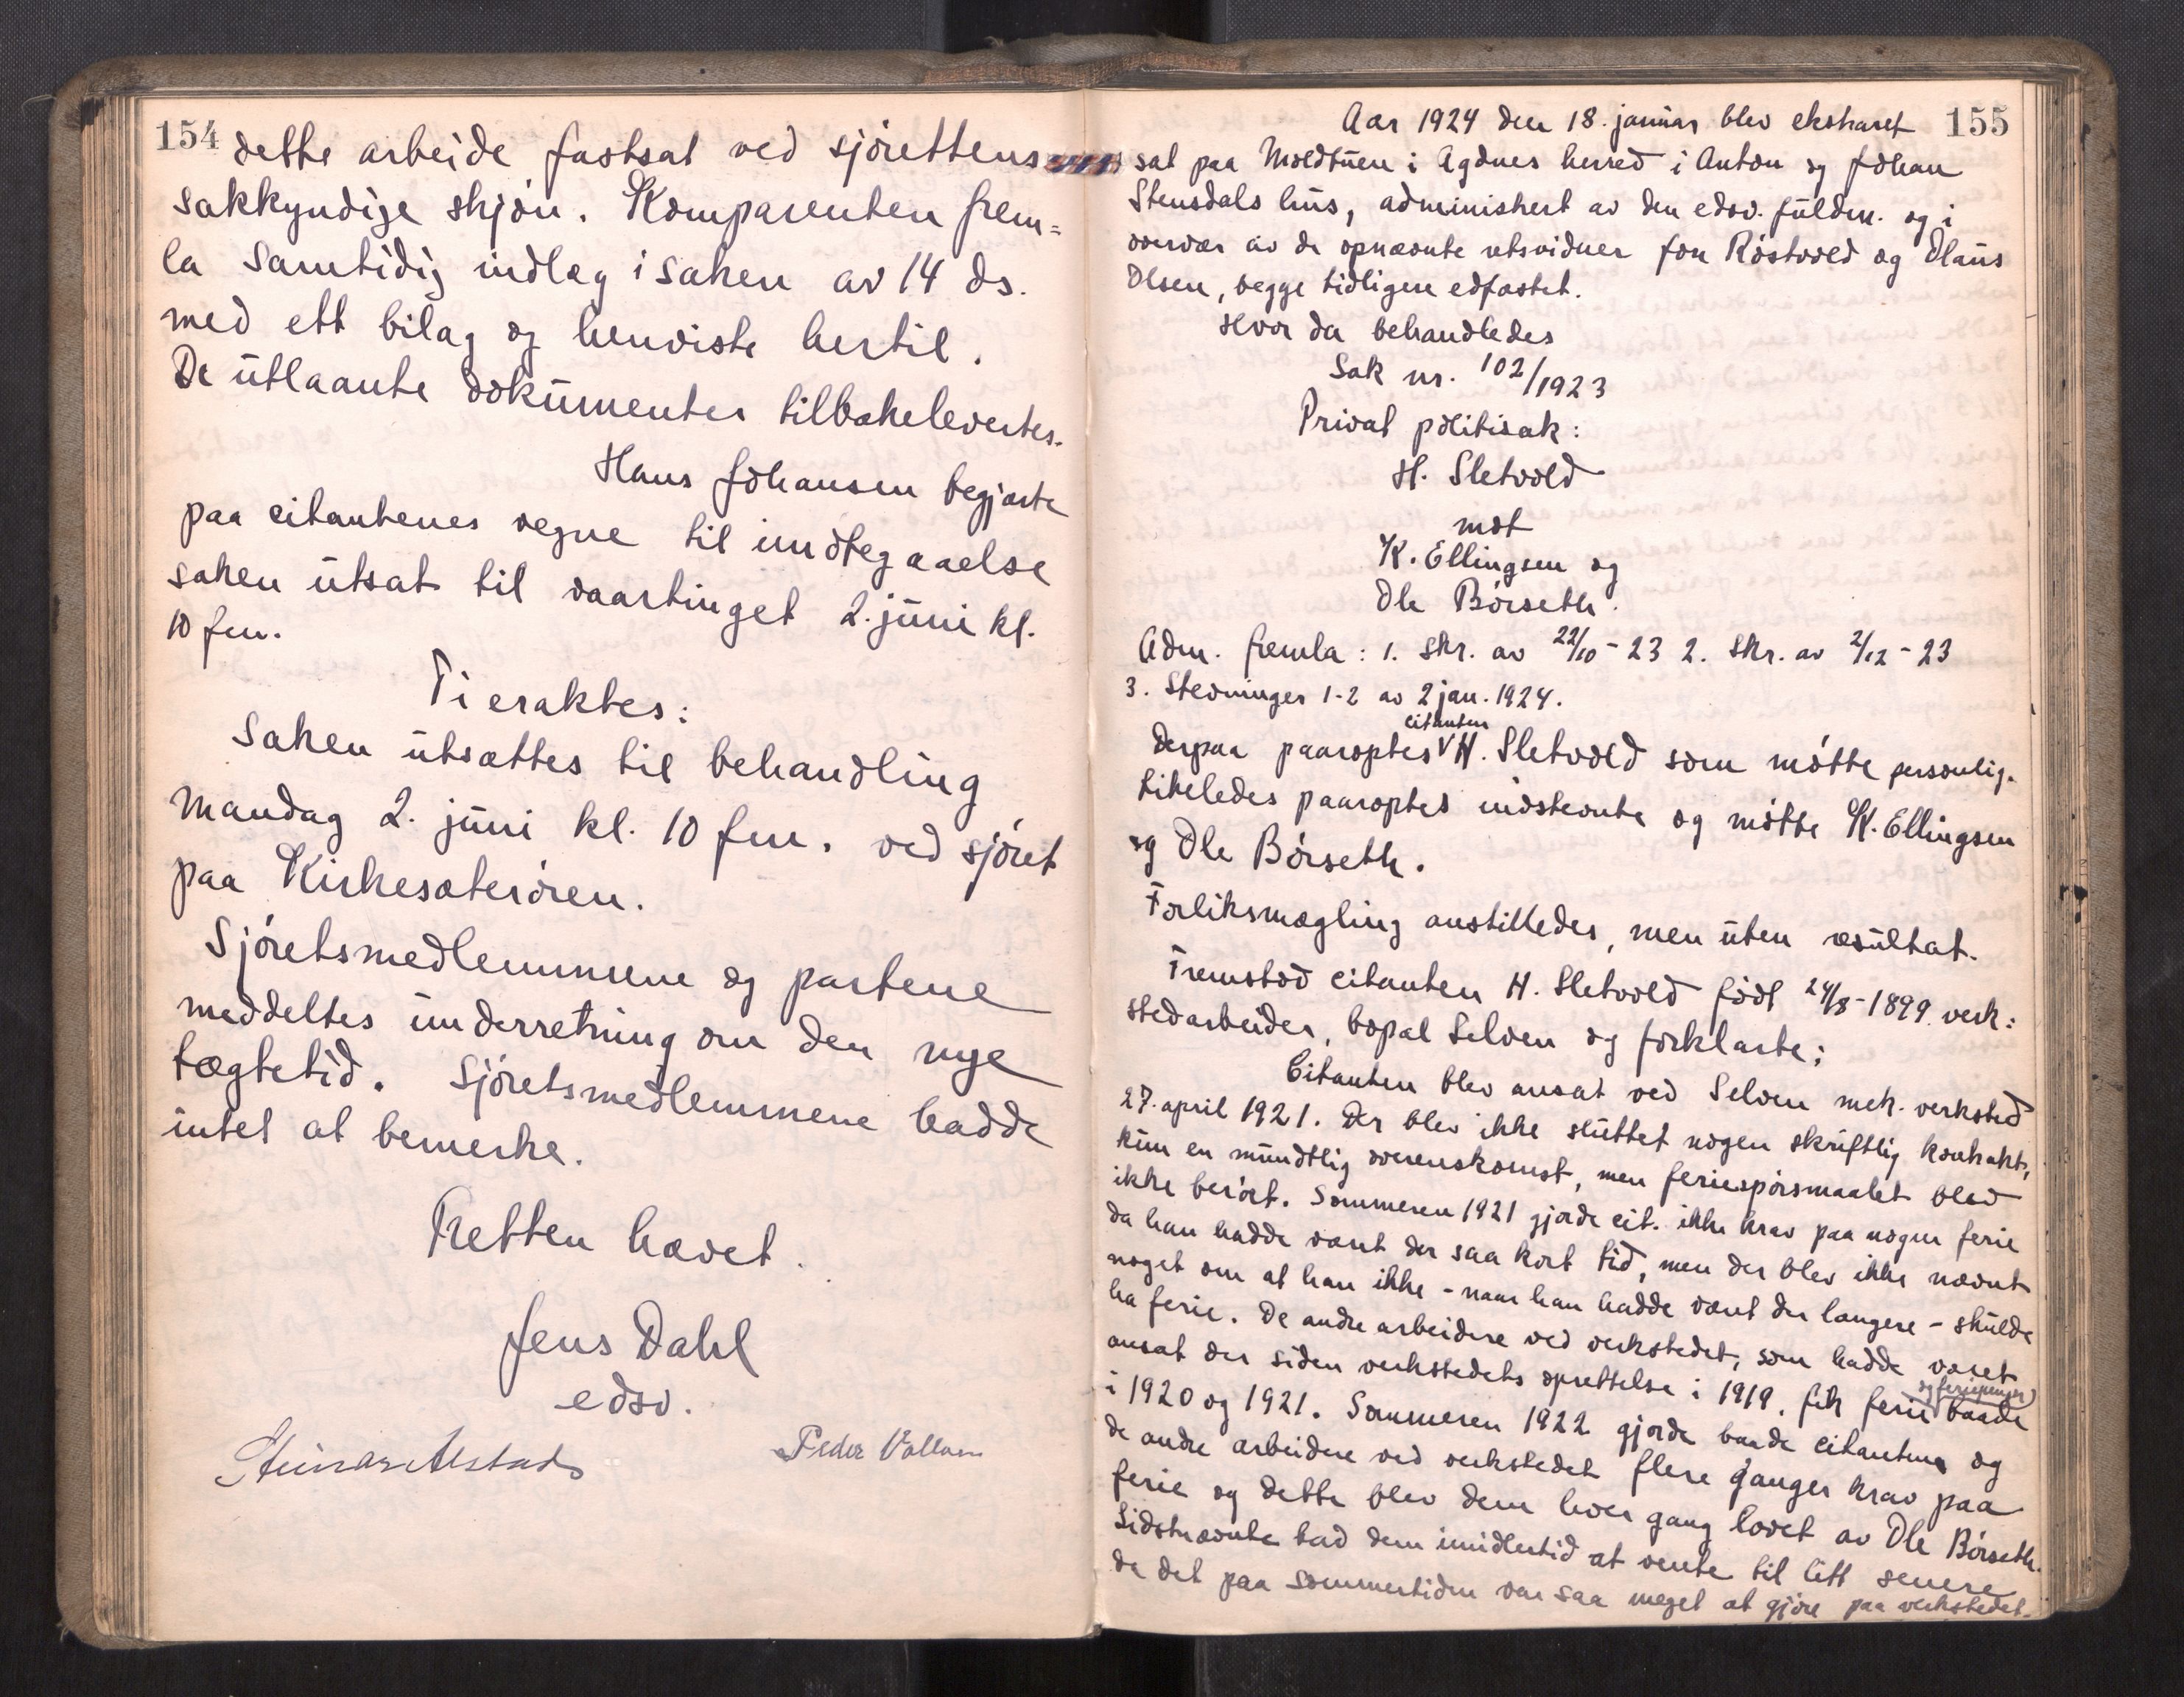 154
dette arbeide fastsat ved sjørettens
sakkyndige skjøn. Komparenten frem=
la samtidig indlæg i saken av 14 ds.
med ett bilag og henviste hertil.
De utlaante dokumenter tilbakelevertes.
Hans Johansen begjærte
paa citantenes vegne til imøtegaaelse
saken utsat til vaartinget 2. juni kl.
10 fm.
Ti eraktes:
Saken utsættes til behandling
mandag 2. juni kl. 10 fm. ved sjøret
paa Kirkesæterøren.
Sjøretsmedlemmene og partene
meddeltes underretning om den nye
tægtetid. Sjøretsmedlemmene hadde
intet at bemerke.
Retten hævet.
Jens Dahl
edsv.
Steinar Alstad
Peder Vollan
155
Aar 1924 den 18. januar blev ekstraret
sat paa Moldtuen i Agdnes herred i Anton og Johan
Stensdals hus, administrert av den edsv. fuldm. og i
overvær av de opnævnte retsvidner Jon Røstvold og Olaus
Olsen, begge tidligere edfæstet.
Hvor da behandledes
Sak nr. 102/1923
Privat politisak:
H. Sletvold
mot
K. Ellingsen og
Ole Børseth.
Adm. fremla: 1. Skr. av 22/10-23 2. Skr. av 2/12-23
3. Stevninger 1-2 av 2 jan. 1924.
Derpaa paaroptes citanten H. Sletvold som møtte personlig.
Likeledes paaroptes indstevnte og møtte K. Ellingsen
og Ole Børseth.
Forliksmægling anstilledes, men uten resultat.
Fremstod citanten H. Sletvold født 24/8-1899. verk=
stedarbeider, bopæl Selven og forklarte:
Citanten blev ansat ved Selven mek. verksted
27. april 1921. Der blev ikke sluttet nogen skriftlig kontrakt,
kun en mundtlig overenskomst, men feriespørsmaalet blev
ikke berørt. Sommeren 1921 gjorde cit. ikke krav paa nogen ferie
da han hadde været der saa kort tid, men der blev ikke nævnt
noget om at han ikke - naar han hadde været der længere - skulde
ha ferie. De andre arbeidere ved verkstedet, som hadde været
ansat der siden verkstedets oprettelse i 1919. fik ferie og feriepenger baade
i 1920 og 1921. Sommeren 1922 gjorde baade citanten og
de andre arbeidere ved verkstedet flere ganger krav paa
ferie og dette blev dem hver gang lovet av Ole Børseth.
Sidstnævnte bad dem imidlertid at vente til litt senere
da det paa sommertiden var saa meget at gjøre paa verkstedet.